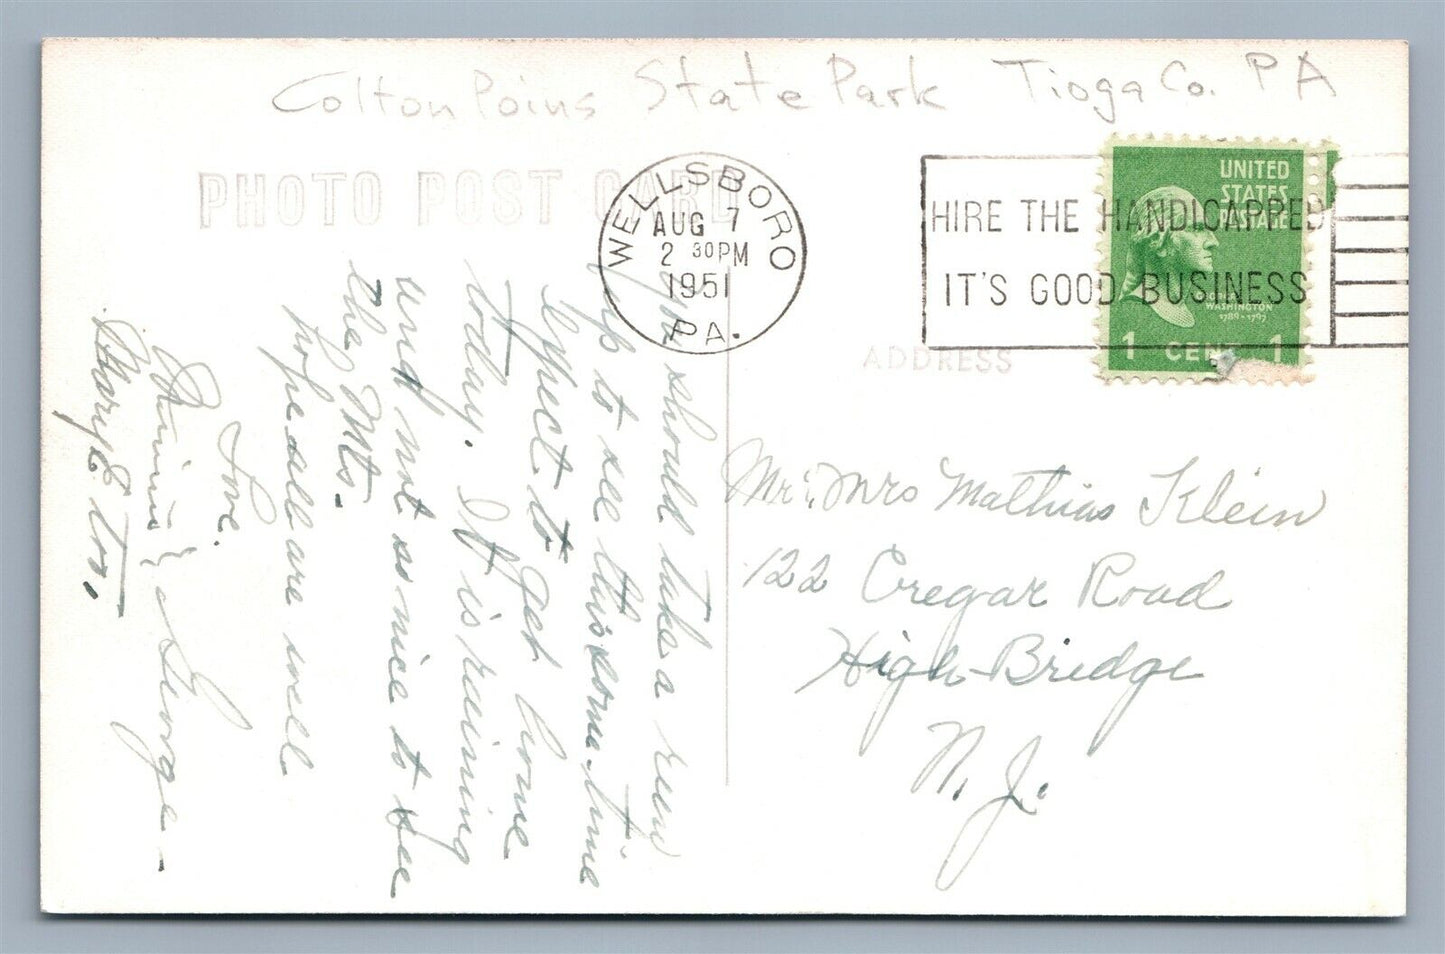 Colton Poins State Park Tioga Co. PA
PHOTO POST CARD
WELLSBORO
AUG 7
2 30 PM
1951
PA.
HIRE THE HANDICAPPED
IT'S GOOD BUSINESS
UNITED
STATES
POSTAGE
GEORGE
WASHINGTON
1789-1797
1 CENT 1
ADDRESS
You should take a run
up to see this some-time
Expect to get home
today. It is raining
and not so nice to see
the Mts.
hope all are well
Love.
& George-
Mary E
Mr. Mrs Mathias Klein
122 Cregar Road
High-Bridge
N. J.